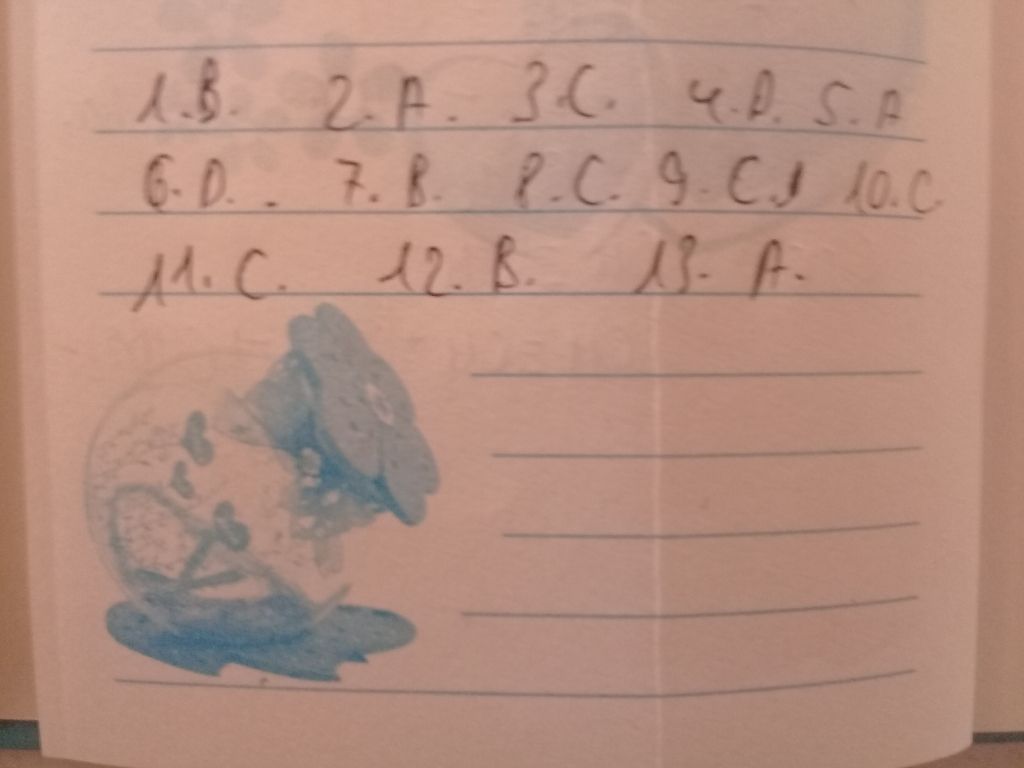 1.B. 2.A. 3.C. 4.D. 5.A
6.D.. 7.B. 8.C. 9.C. 10.C
11.C. 12.B. 13.A.